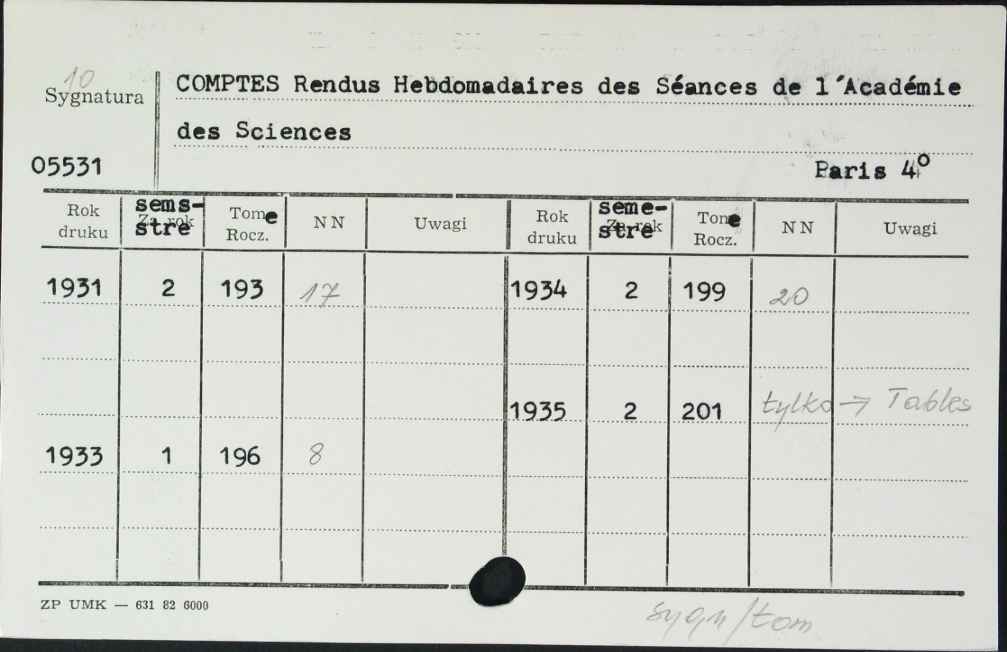 10
Sygnatura
COMPTES Rendus Hebdomadaires des Séances de l'Académie
des Sciences
05531
Paris 4°
Rok druku | sems-stre Za rok | Tome Rocz. | NN | Uwagi | Rok druku | seme-stre Za rok | Tome Rocz. | NN | Uwagi
1931 2 193 17 1934 2 199 20
1935 2 201 tylko → Tables
1933 1 196 8
ZP UMK — 631 82 6000
sygn/tom